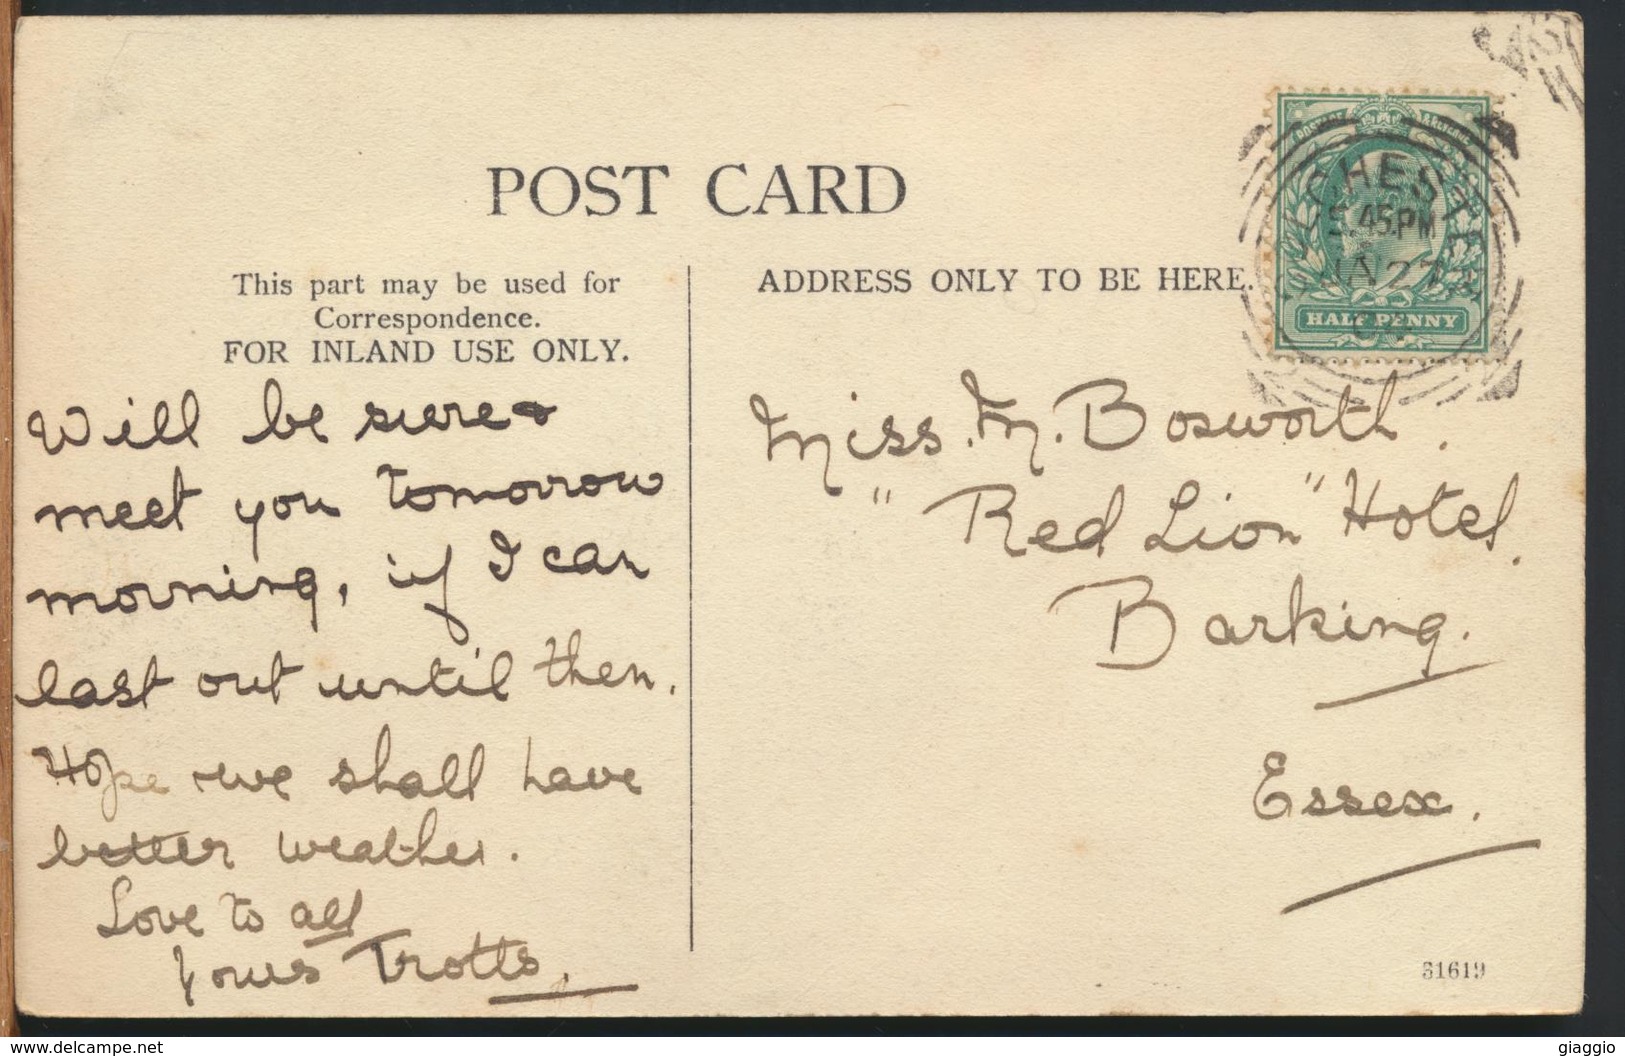 POST CARD
This part may be used for
Correspondence.
FOR INLAND USE ONLY.
ADDRESS ONLY TO BE HERE.
POSTAGE & REVENUE
HALF PENNY
CHESTER
5.45.PM
27
Will be sure &
meet you tomorrow
morning, if I can
last out until then.
Hope we shall have
better weather.
Love to all
Yours Trotts.
Miss. M. Bosworth.
"Red Lion" Hotel.
Barking.
Essex.
31619
www.delcampe.net
giaggio